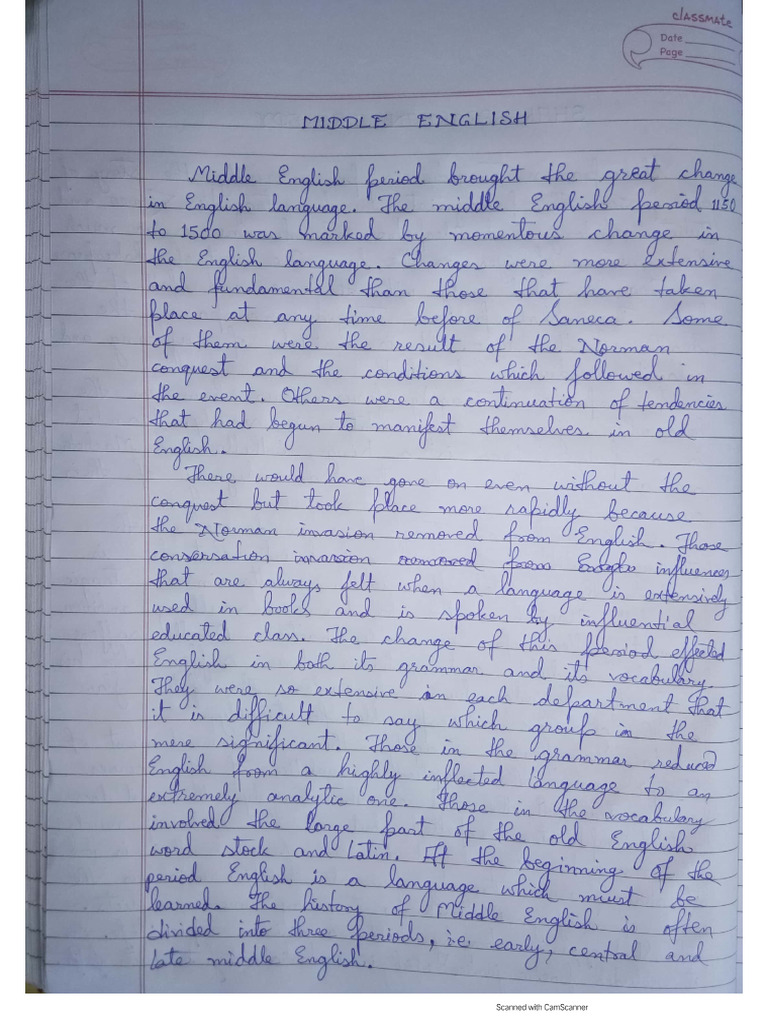 classmate
Date
Page
MIDDLE ENGLISH
Middle English period brought the great change
in English language. The middle English period 1150
to 1500 was marked by momentous change in
the English language. Changes were more extensive
and fundamental than those that have taken
place at any time before of Saneca. Some
of them were the result of the Norman
conquest and the conditions which followed in
the event. Others were a continuation of tendencies
that had begun to manifest themselves in old
English.
There would have gone on even without the
conquest but took place more rapidly because
the Norman invasion removed from English. Those
conversation invasion removed from influences
that are always felt when a language is extensively
used in books and is spoken by influential
educated class. The change of this period effected
English in both its grammar and its vocabulary.
They were so extensive in each department that
it is difficult to say which group is the
mere significant. Those in the grammar reduced
English from a highly inflected language to an
extremely analytic one. Those in the vocabulary
involved the large part of the old English
word stock and Latin. At the beginning of the
period English is a language which must be
learned. The history of Middle English is often
divided into three periods, i.e. early, central and
late middle English.
Scanned with CamScanner